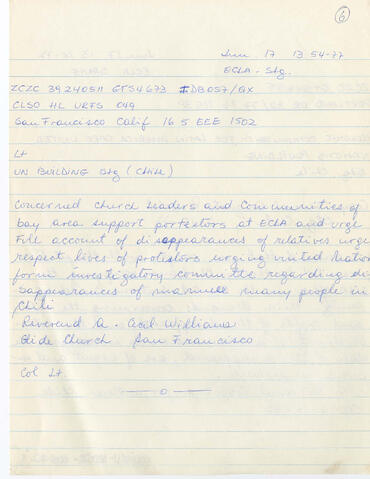 6
Jun 17 13 54-77
ECLA - Stg.
ZCZC 39240511 GTS4673 IDB057/GX
CLSO HL URTS 049
San Francisco Calif 16 5 EEE 1502
Lt
UN BUILDING Stg (Chile)
Concerned Church leaders and Communities of
bay area support portestors at ECLA and urge
Full account of disappearances of relatives urge
respect lives of protistors urging united Nation
form investigatory committe regarding di
sappearances of many people in
Chili
Reverend A. Cecil Williams
Glide Church San Francisco
Col Lt